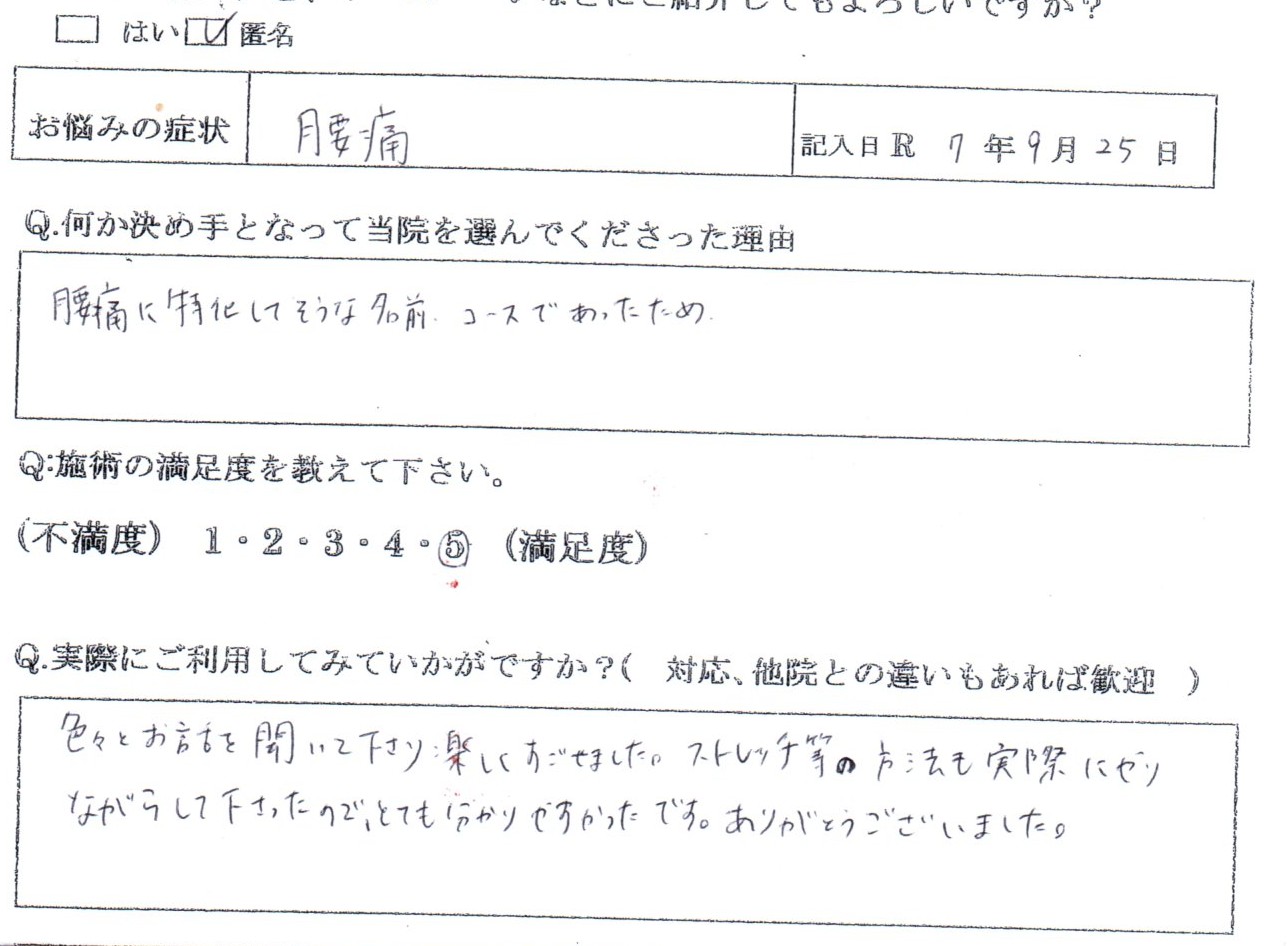 なさにご紹介してもよろしいですか?
□ はい ☑ 匿名
お悩みの症状 腰痛 記入日R 7年9月25日
Q.何か決め手となって当院を選んでくださった理由
腰痛に特化してそうな名前.コースであったため.
Q:施術の満足度を教えて下さい。
(不満度) 1・2・3・4・⑤ (満足度)
Q.実際にご利用してみていかがですか?( 対応、他院との違いもあれば歓迎 )
色々とお話を聞いて下さり楽しくすごせました。ストレッチ等の方法も実際にやり
ながらして下さったので、とても分かりやすかったです。ありがとうございました。